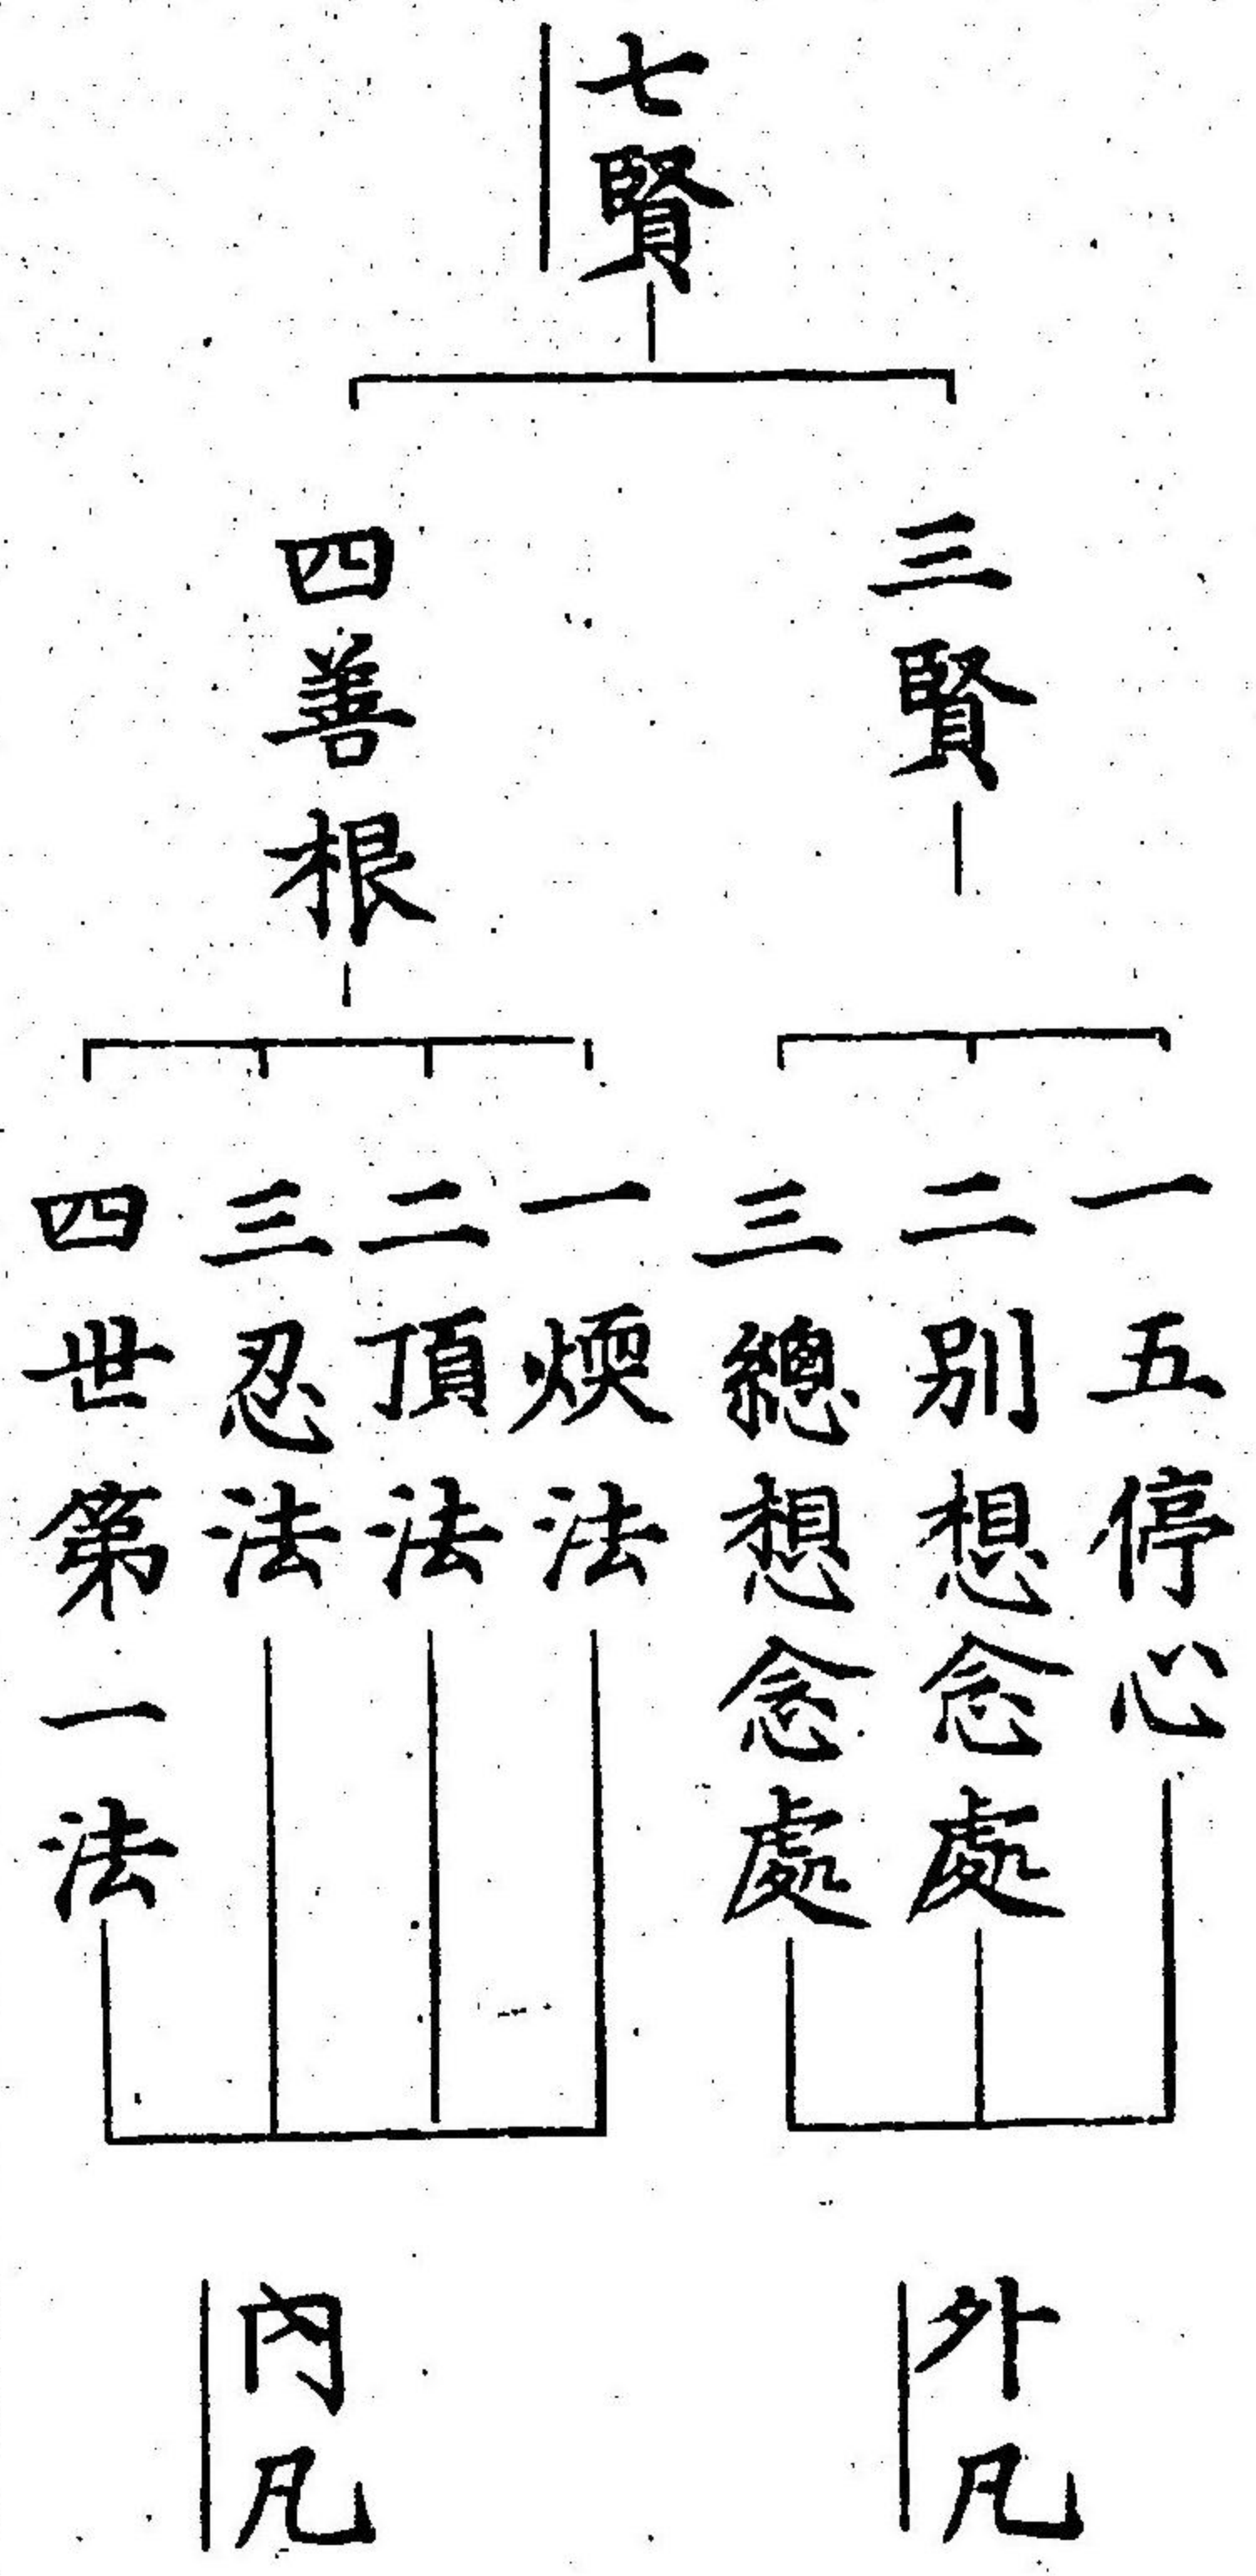 七賢
三賢
四善根
一五停心
二別想念處
三總想念處
一煗法
二頂法
三忍法
四世第一法
外凡
內凡